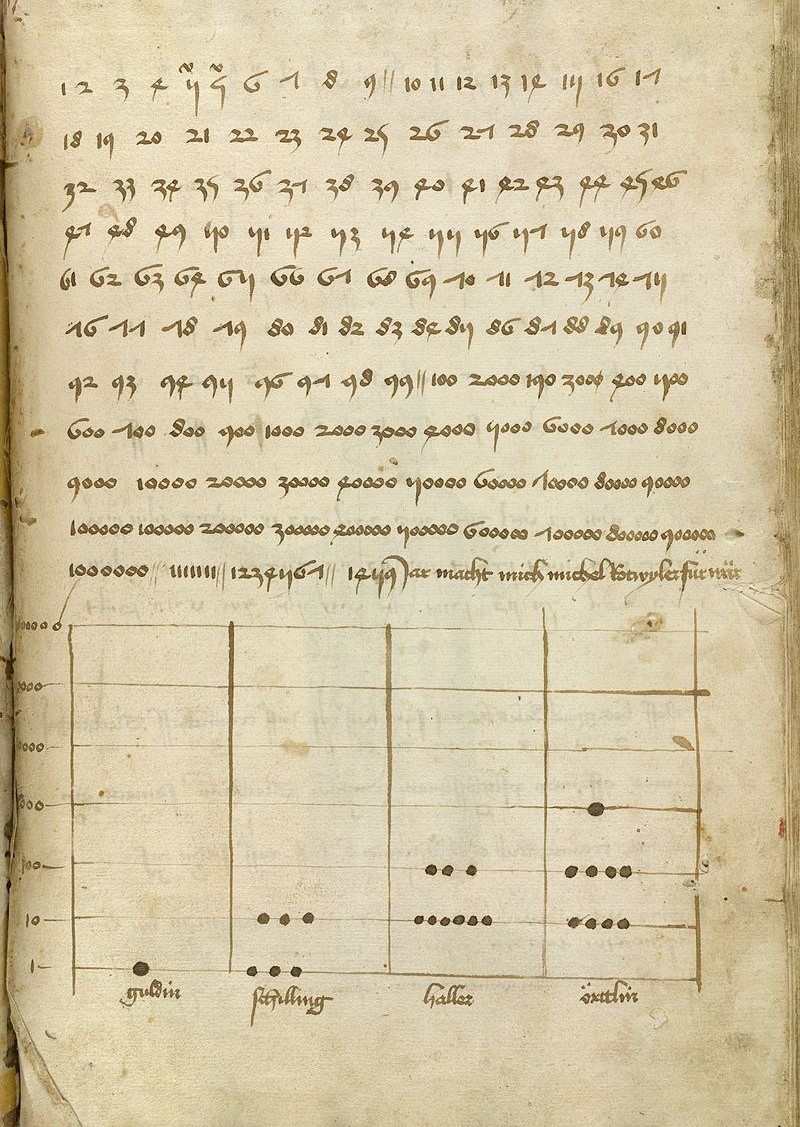 1 2 3 4 5 5 6 7 8 9 // 10 11 12 13 14 15 16 17
18 19 20 21 22 23 24 25 26 27 28 29 30 31
32 33 34 35 36 37 38 39 40 41 42 43 44 45 46
47 48 49 50 51 52 53 54 55 56 57 58 59 60
61 62 63 64 65 66 67 68 69 70 71 72 73 74 75
76 77 78 79 80 81 82 83 84 85 86 87 88 89 90 91
92 93 94 95 96 97 98 99 // 100 2000 190 3000 400 500
600 700 800 900 1000 2000 3000 4000 5000 6000 7000 8000
9000 10000 20000 30000 40000 50000 60000 70000 80000 90000
100000 100000 200000 300000 400000 500000 600000 700000 800000 900000
1000000 // // 1234567 // 1459 ar macht mich michel Rotwyler für
100
10
1
guldin schilling haller örttlin